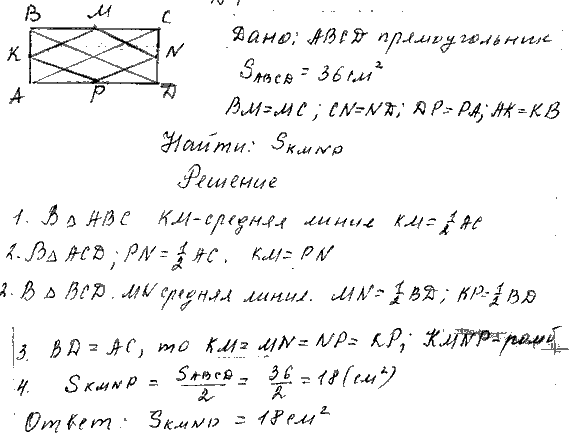 B M C
K N
A P D
Дано: ABCD прямоугольник
S_ABCD = 36 см²
BM=MC; CN=ND; DP=PA; AK=KB
Найти: S_KMNP
Решение
1. В △ ABC KM-средняя линия KM=½AC
2. В △ ACD; PN=½AC. KM=PN
2. В △ BCD. MN средняя линия. MN=½BD; KP=½BD
3. BD=AC, то KM=MN=NP=KP; KMNP=ромб
4. S_KMNP = S_ABCD/2 = 36/2 = 18 (см²)
Ответ: S_KMNP = 18 см²